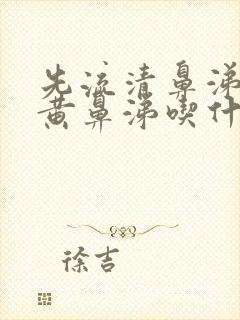 先流清鼻涕
黄鼻涕喫什
徐吉